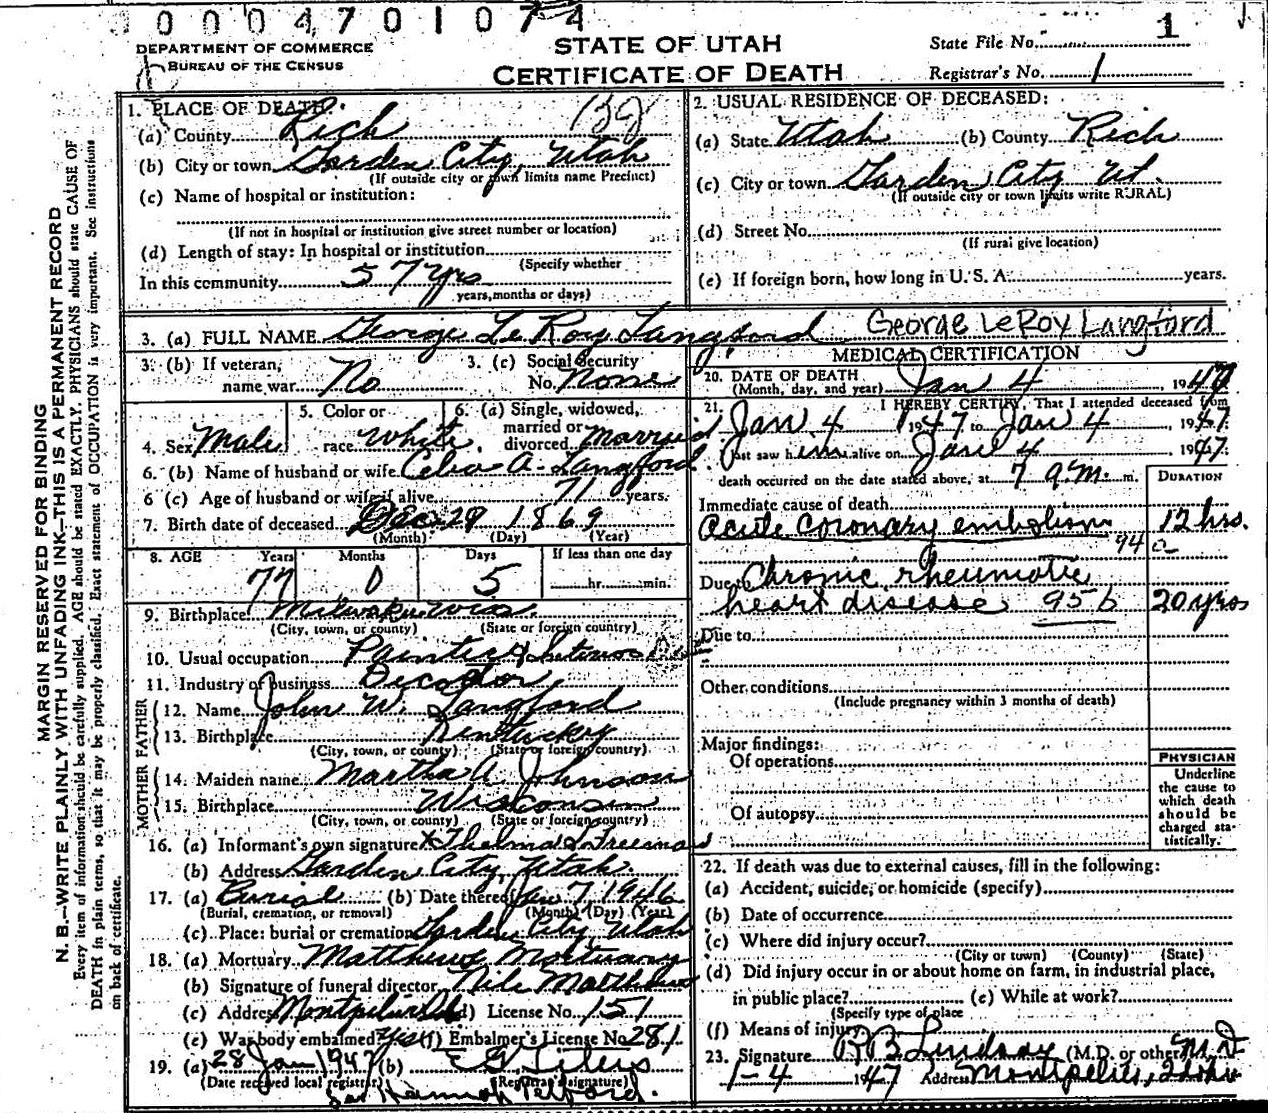 0004701074
DEPARTMENT OF COMMERCE
BUREAU OF THE CENSUS
STATE OF UTAH
CERTIFICATE OF DEATH
State File No. 1
Registrar's No. 1
MARGIN RESERVED FOR BINDING
N. B.—WRITE PLAINLY WITH UNFADING INK—THIS IS A PERMANENT RECORD
Every item of information should be carefully supplied. AGE should be stated EXACTLY. PHYSICIANS should state CAUSE OF
DEATH in plain terms, so that it may be properly classified. Exact statement of OCCUPATION is very important. See instructions
on back of certificate.
1. PLACE OF DEATH:
(a) County Rich
(b) City or town Garden City, Utah
(If outside city or town limits name Precinct)
(c) Name of hospital or institution:
(If not in hospital or institution give street number or location)
(d) Length of stay: In hospital or institution
(Specify whether
In this community 57 yrs
years, months or days)
2. USUAL RESIDENCE OF DECEASED:
(a) State Utah (b) County Rich
(c) City or town Garden City Ut.
(If outside city or town limits write RURAL)
(d) Street No.
(If rural give location)
(e) If foreign born, how long in U. S. A. years.
3. (a) FULL NAME George LeRoy Langford George LeRoy Langford
3. (b) If veteran, name war No
3. (c) Social Security No. None
4. Sex Male
5. Color or race White
6. (a) Single, widowed, married or divorced Married
6. (b) Name of husband or wife Celia A. Langford
6 (c) Age of husband or wife if alive 71 years.
7. Birth date of deceased Dec 29 1869
(Month) (Day) (Year)
8. AGE Years 77 Months 0 Days 5 If less than one day hr. min.
9. Birthplace Milwakee Wis
(City, town, or county) (State or foreign country)
10. Usual occupation Painter &
11. Industry or business Decorator
FATHER
12. Name John W. Langford
13. Birthplace Kentucky
(City, town, or county) (State or foreign country)
MOTHER
14. Maiden name Martha A Johnson
15. Birthplace Wisconsin
(City, town, or county) (State or foreign country)
16. (a) Informant's own signature x Thelma L Freeman
(b) Address Garden City, Utah.
17. (a) Burial (b) Date thereof Jan 7 1946
(Burial, cremation, or removal) (Month) (Day) (Year)
(c) Place: burial or cremation Garden City Utah
18. (a) Mortuary Matthews Mortuary
(b) Signature of funeral director Nile Matthews
(c) Address Montpelier Ida (d) License No. 151
(e) Was body embalmed? Yes (f) Embalmer's License No 281
19. (a) 28 Jan 1947 (b)
(Date received local registrar) (Registrar's signature)
Telford.
MEDICAL CERTIFICATION
20. DATE OF DEATH
(Month, day, and year) Jan 4, 1947
21. I HEREBY CERTIFY, That I attended deceased from
Jan 4 1947 to Jan 4, 1947
last saw him alive on Jan 4 1947.
death occurred on the date stated above, at 7 a.m. m.
DURATION
Immediate cause of death
Acute coronary embolism 12 hrs.
94 a
Due to Chronic rheumatic
heart disease 95 b 20 yrs
Due to
Other conditions
(Include pregnancy within 3 months of death)
Major findings:
Of operations
Of autopsy
PHYSICIAN
Underline
the cause to
which death
should be
charged sta-
tistically.
22. If death was due to external causes, fill in the following:
(a) Accident, suicide, or homicide (specify)
(b) Date of occurrence
(c) Where did injury occur?
(City or town) (County) (State)
(d) Did injury occur in or about home on farm, in industrial place,
in public place? (e) While at work?
(Specify type of place
(f) Means of injury
23. Signature R B Lindsay (M.D. or other) M.D
1-4 1947 Address Montpelier, Idaho